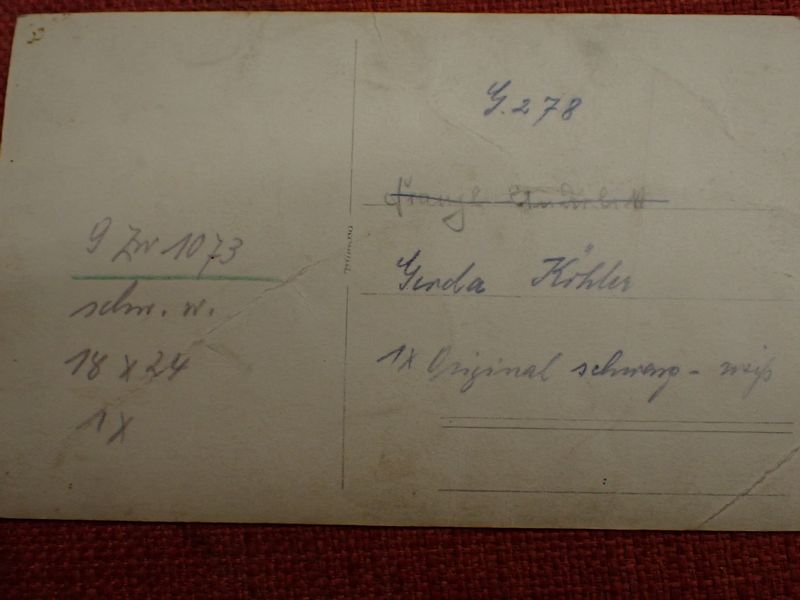 9 Zw 1073
schw. w.
18 x 24
1x
G. 278
Gerda Köhler
1x Original schwarz - weiß